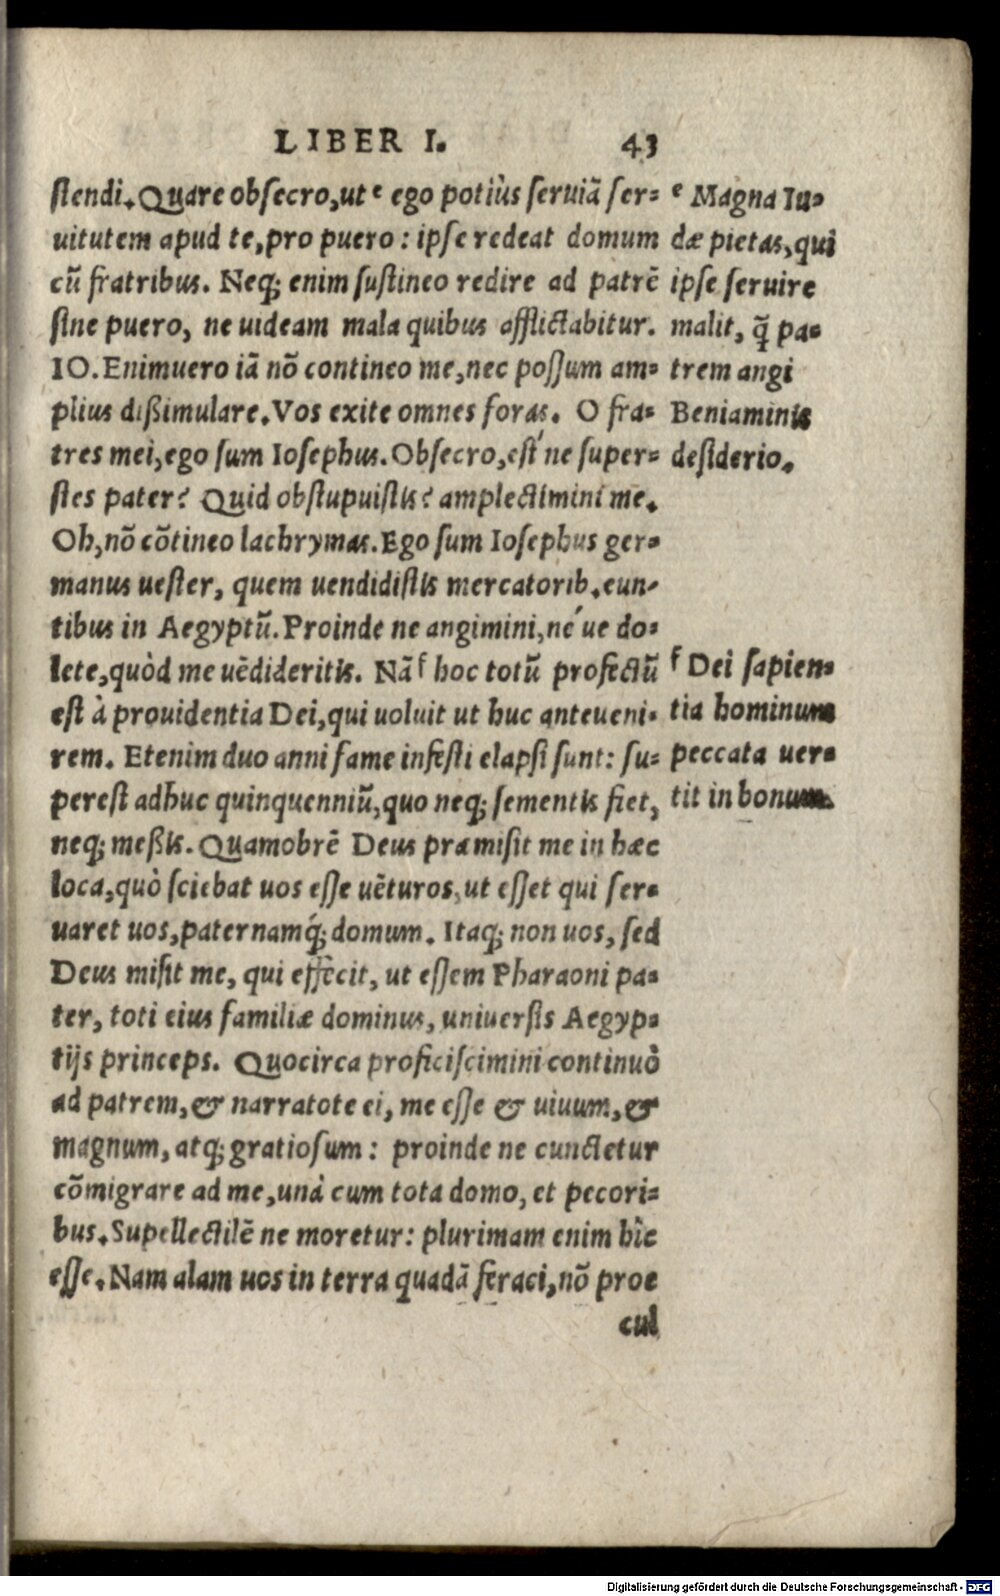 LIBER I. 43
stendi. Quare obsecro, ut ᵉ ego potiùs seruiã ser-
uitutem apud te, pro puero: ipse redeat domum
cũ fratribus. Neq; enim sustineo redire ad patrẽ
sine puero, ne uideam mala quibus afflictabitur.
IO. Enimuero iã nõ contineo me, nec possum am-
plius dißimulare. Vos exite omnes foras. O fra-
tres mei, ego sum Iosephus. Obsecro, est´ne super-
stes pater? Quid obstupuistis? amplectimini me.
Oh, nõ cõtineo lachrymas. Ego sum Iosephus ger-
manus uester, quem uendidistis mercatorib. eun-
tibus in Aegyptũ. Proinde ne angimini, né ue do-
lete, quòd me uẽdideritis. Nã ᶠ hoc totũ profectũ
est à prouidentia Dei, qui uoluit ut huc anteueni-
rem. Etenim duo anni fame infesti elapsi sunt: su-
perest adhuc quinquenniũ, quo neq; sementis fiet,
neq; meßis. Quamobrẽ Deus præmisit me in hæc
loca, quò sciebat uos esse uẽturos, ut esset qui ser-
uaret uos, paternamq́; domum. Itaq; non uos, sed
Deus misit me, qui effecit, ut essem Pharaoni pa-
ter, toti eius familiæ dominus, uniuersis Aegyp-
tijs princeps. Quocirca proficiscimini continuò
ad patrem, & narratote ei, me esse & uiuum, &
magnum, atq; gratiosum: proinde ne cunctetur
cõmigrare ad me, unà cum tota domo, et pecori-
bus. Supellectilẽ ne moretur: plurimam enim hîc
esse. Nam alam uos in terra quadã feraci, nõ proe
cul
ᵉ Magna Iu-
dæ pietas, qui
ipse seruire
malit, q̃ pa-
trem angi
Beniaminis
desiderio.
ᶠ Dei sapien-
tia hominum
peccata uer-
tit in bonum.
Digitalisierung gefördert durch die Deutsche Forschungsgemeinschaft - DFG